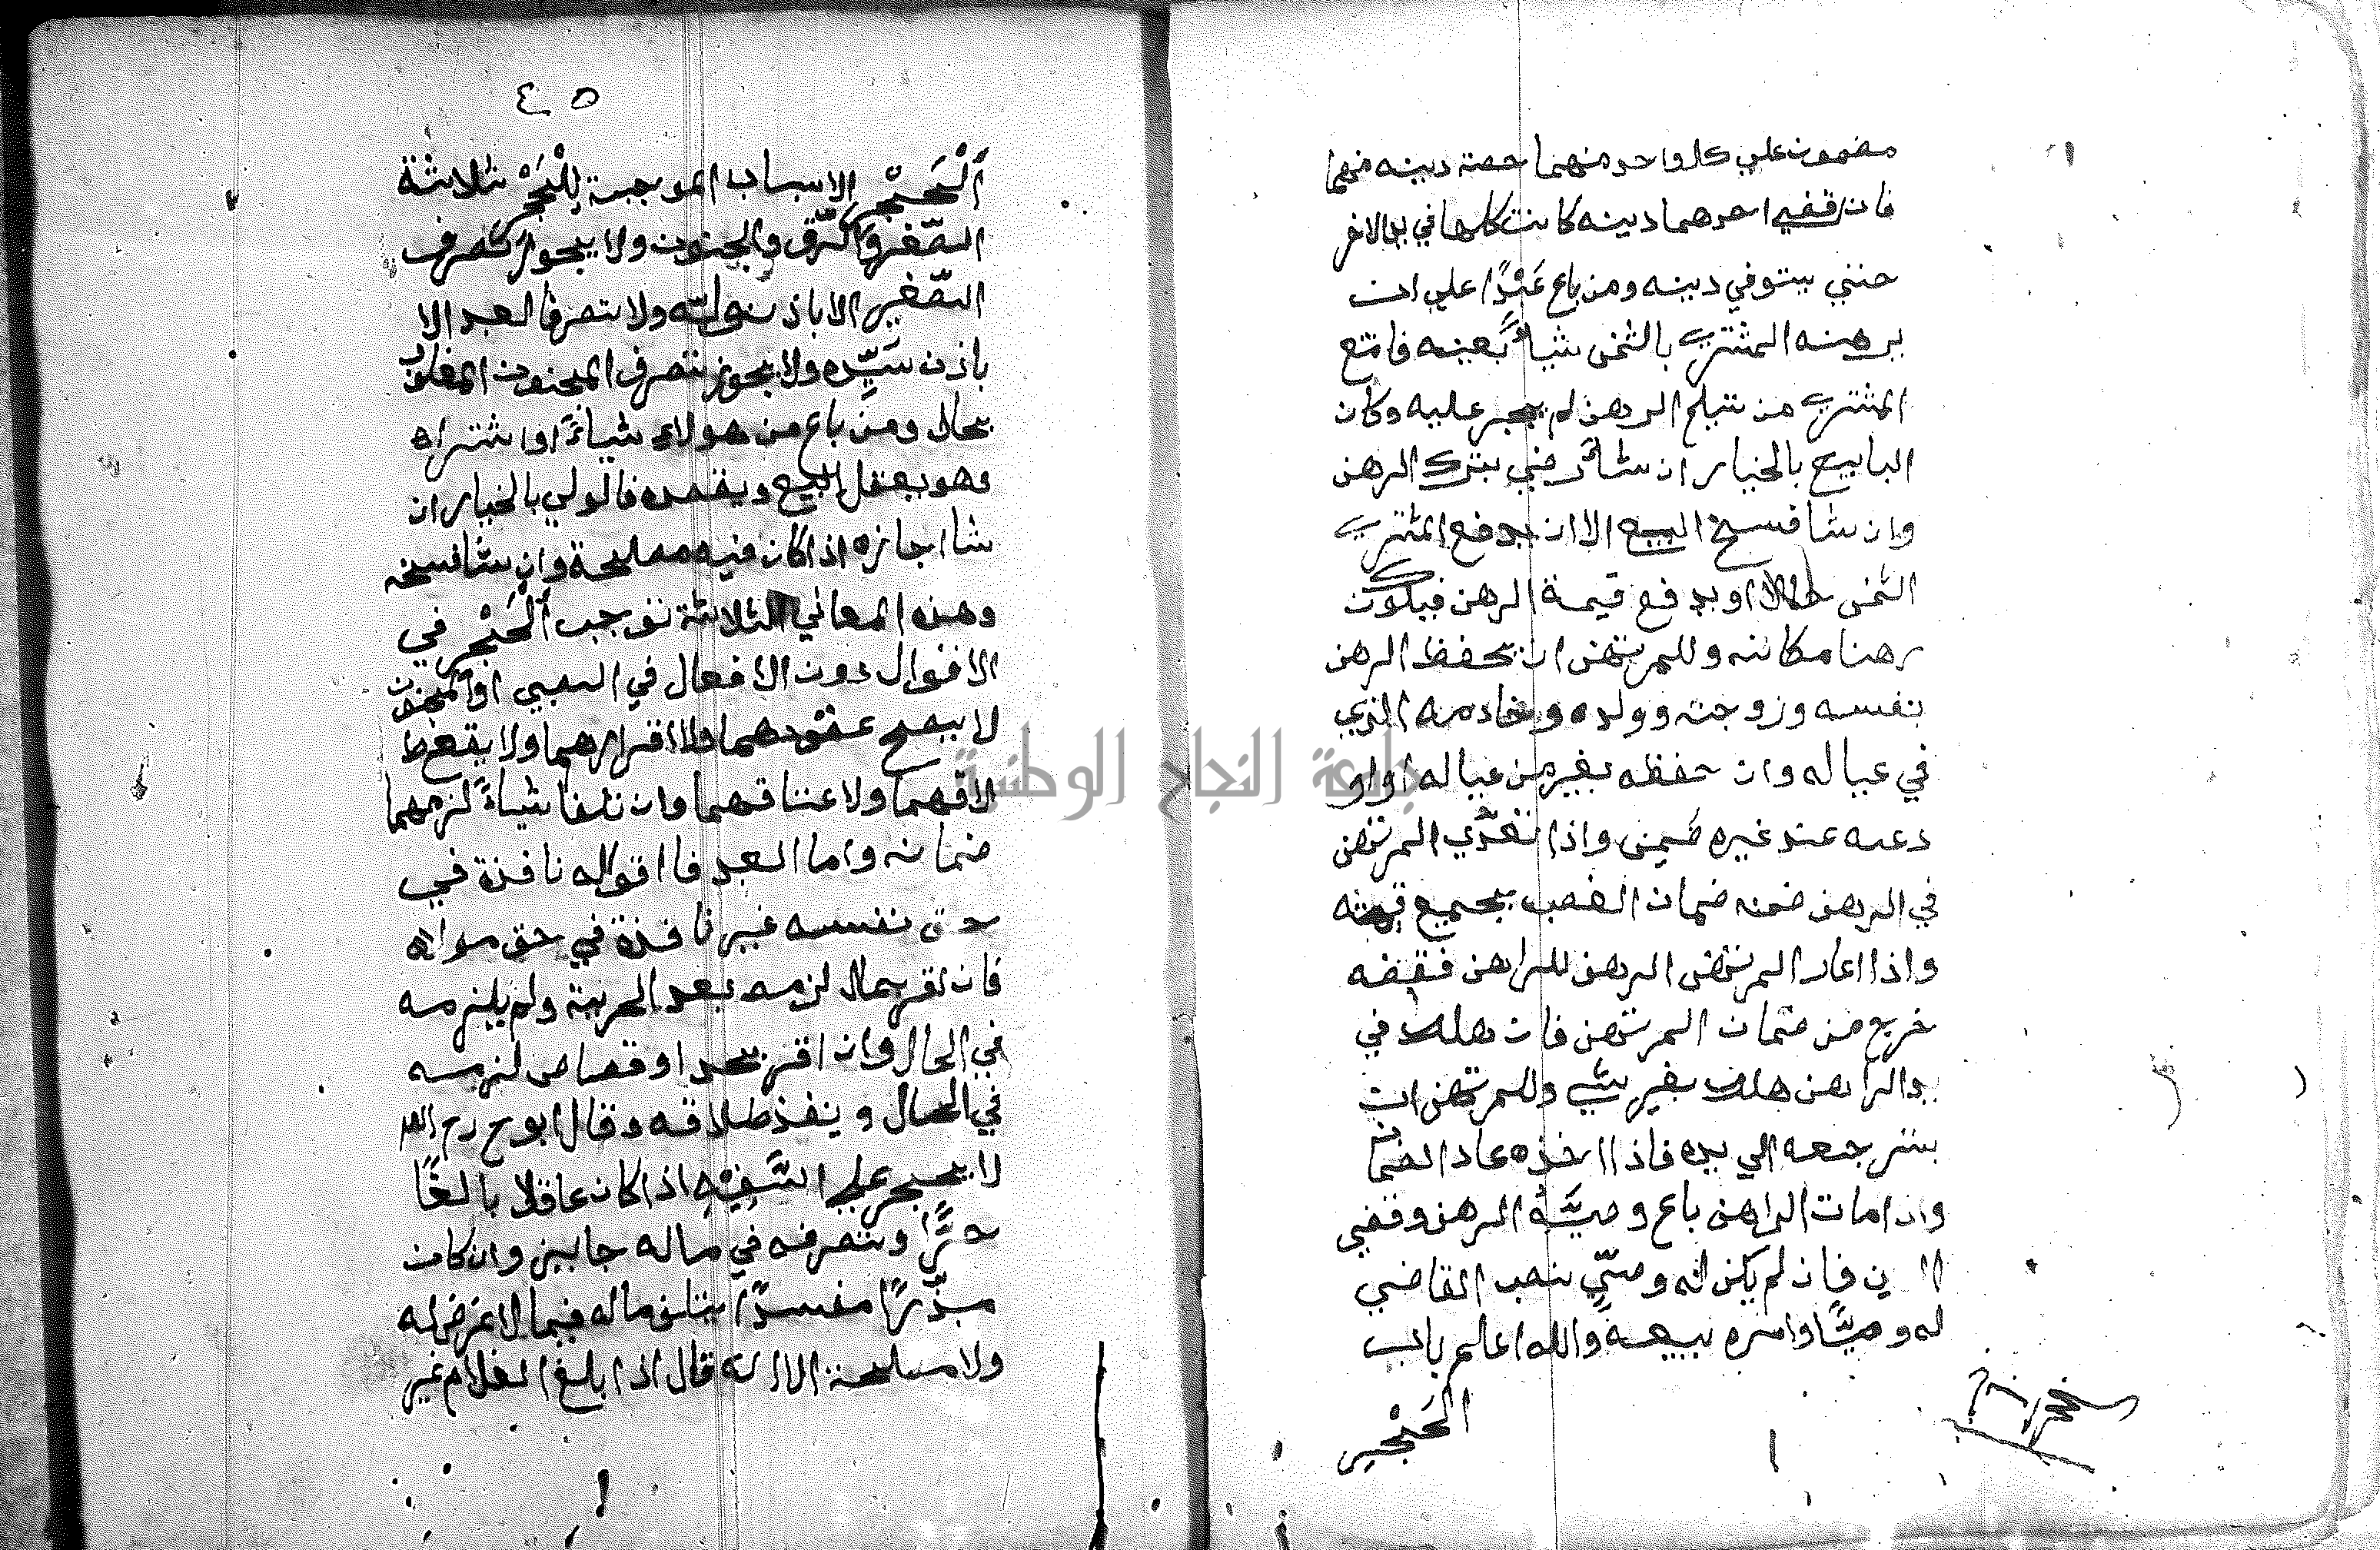 مضمون علي كل واحد منهما حصة دينه منهما
فان قضي احدهما دينه كانت كلها في يد الاخر
حتي يستوفي دينه ومن باع عَبْدًا علي ان
يرهنه المشتري بالثمن شياً بعينه فامتنع
المشتري من تسليم الرهن لم يجبر عليه وكان
البايع بالخيار ان شا رضي بترك الرهن
وان شا فسخ البيع الا ان يدفع المشتري
الثمن حالا او يدفع قيمة الرهن فيكون
رهنا مكانه وللمرتهن ان يحفظ الرهن
بنفسه وزوجته وولده وخادمه الذي
في عياله وان حفظه بغير من عياله او او
دعه عند غيره ضمن واذا تعدّي المرتهن
في الرهن ضمنه ضمان الغصب بجميع قيمته
واذا اعار المرتهن الرهن للراهن فقبضه
خرج من ضمان المرتهن فان هلك في
يد الراهن هلك بغير شي وللمرتهن ان
يسترجعه الي يده فاذا اخذه عاد الضمان
واذا مات الراهن باع وصيّه الرهن وقضي
الدين فان لم يكن له وصيّ نصب القاضي
له وصيّا وامره ببيعه والله اعلم باب
الحَجْر
٤٥
اَلْحَجْر الاسباب الموجبة لِلْحَجْر ثلاثة
الصّغر والرّق والجنون ولا يجوز تصرف
الصّغير الا باذن وليّه ولا تصرف العبد الا
باذن سَيّده ولا يجوز تصرف المجنون المغلوب
بحال ومن باع من هولاء شياءً او اشتراه
وهو يعقل البيع ويقصده فالولي بالخيار ان
شا اجازه اذا كان فيه مصلحة وان شا فسخه
وهذه المعاني الثلاثة توجب اَلْحَجْر في
الاقوال دون الافعال في الصبي او المجنون
لا يصح عقودهما ولا اقرارهما ولا يقع ط
لاقهما ولا عتاقهما وان تلفا شياءً لزمهما
ضمانه واما العبد فا اقواله نافذة في
حق نفسه غير نافذة في حق مولاه
فان اقر بمال لزمه بعد الحرية ولم يلزمه
في الحال وان اقر بحد او قصاص لزمه
في الحال وينفذ طلاقه وقال ابو ح رح الله
لا يحجر علي السَّفِيْهِ اذا كان عاقلا بالغًا
حرًّا وتصرفه في ماله جايز وان كان
مبذّرًا مفسدًا يتلف ماله فيما لا غرض له
ولا مصلحة الا انه قال اذا بلغ الغلام غير
جامعة النجاح الوطنية